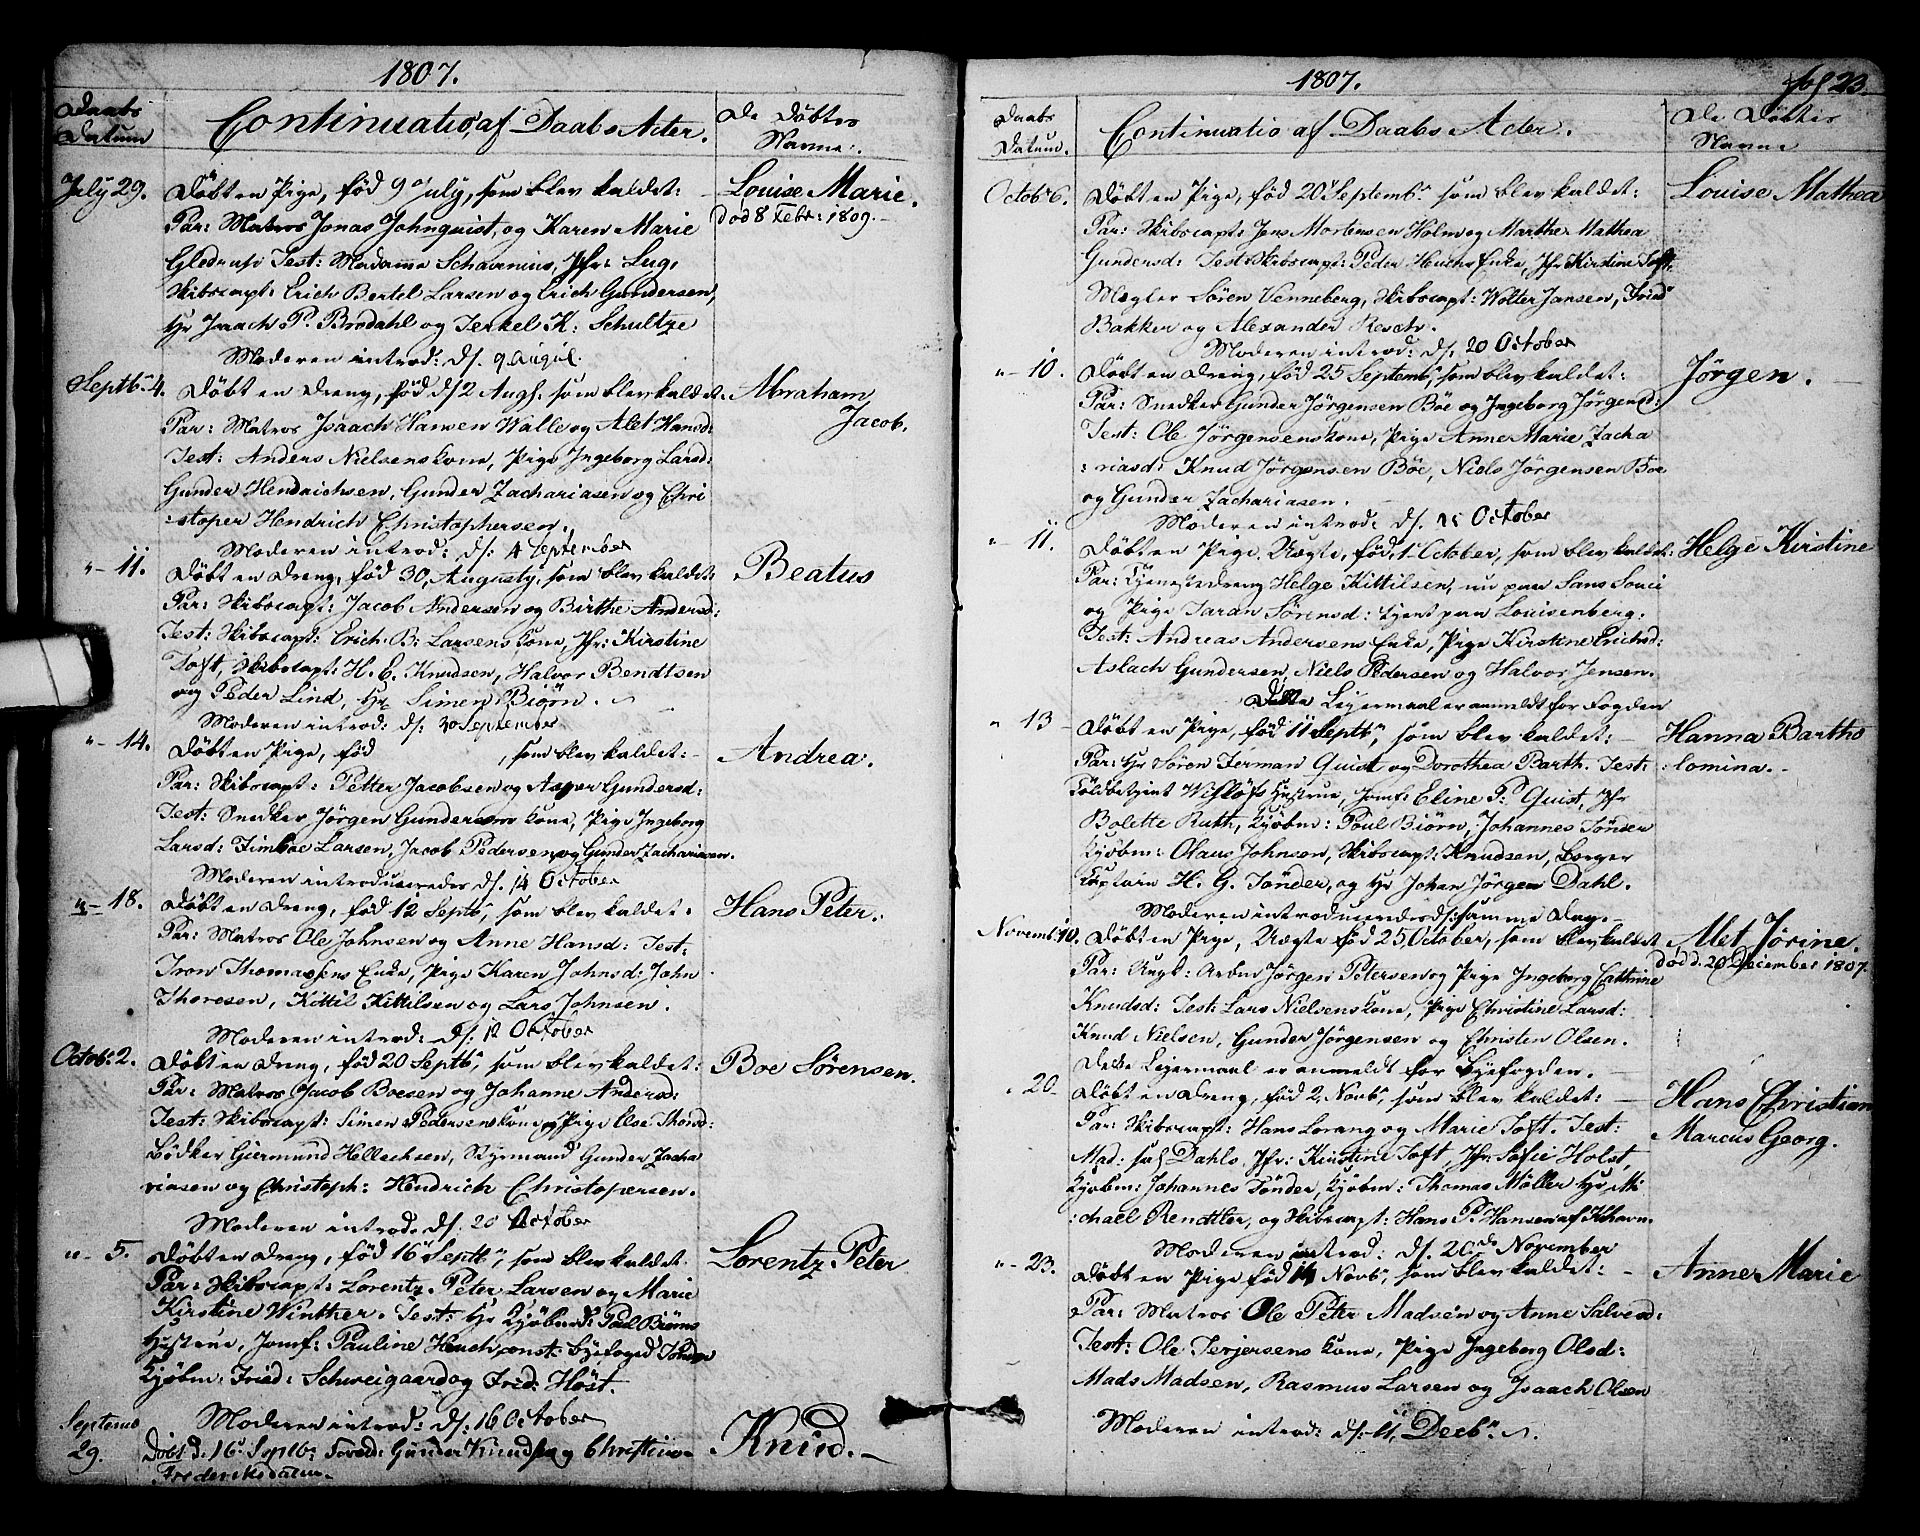 1807.
Daabs Datum
Continuatio, af Daabs Acter.
De Döbtes Navne:
July 29. Döbt en Pige, fød 9 July, som blev kaldet: Louise Marie.
Par: Matros Jonas Johnquist, og Karen Marie død 8 Febr: 1809.
Test: Madame Schavenius, Jfr: Lug,
Skibscapt: Erich Bertel Larsen og Erich Gundersen,
Hr Isaach P. Brodahl og Terkel K: Schultze
Moderen introd: ds. 9 August.
Septbr 4. Döbt en Dreng, fød d/2 Augs: som blev kaldet. Abraham
Par: Matros Isaach Hansen Walle og Alet Hansd: Jacob.
Test: Anders Nielsens Kone, Pige Ingeborg Larsd:
Gunder Hendrichsen, Gunder Zachariasen og Chri
stoper Hendrich Christophersen.
Moderen introd: ds: 4 September
"- 11. Döbt en Dreng, fød 30 Augusty, som blev kaldet: Beatus
Par: Skibscapt: Jacob Andersen og Birthe Andersd:
Test: Skibscapt: Erich B: Larsens Kone, Jfr: Kirstine
Toft, Skibscapt: H. E. Knudsen, Halvor Bendtsen
og Peder Lind, Hr Simen Biörn.
Moderen introd: ds: 30 September
"- 14. Döbt en Pige, fød , som blev kaldet: Andrea.
Par: Skibscapt: Petter Jacobsen og Asper Gundersd:
Test: Snedker Jörgen Gundersens Kone, Pige Ingeborg
Larsd: Larsen, Jacob Pedersen, og Gunder Zachariasen.
Moderen introduceredes ds. 14 October
"- 18. Döbt en Dreng, fød 12 Septbr, som blev kaldet: Hans Peter.
Par: Matros Ole Johnsen og Anne Hansd: Test:
Iron Thomassens Enke, Pige Karen Johnsd: John
Thoresen, Kittil Kittilsen og Lars Johnsen.
Moderen introd: ds: 12 October
Octob: 2. Döbt en Dreng, fød 20 Septbr, som blev kaldet: Boe Sörensen.
Par: Matros Jacob Boesen og Johanne Andersd:
Test: Skibscapt: Simen Pedersens Kone og Pige Else Thorsd:
Bödker Giermund Hellechsen, Styrmand Gunder Zacha
riasen og Christoph: Hendrich Christopersen.
Moderen introd. ds. 20 October
"- 5. Döbt en Dreng, fød 16 Septbr, som blev kaldet: Lorentz Peter
Par: Skibscapt: Lorentz Peter Larsen og Marie
Kirstine Winther. Test: Hr Kjöbmd: Poul Biörns
Hustrue, Jomf: Pauline Huuch, const: Byefoged Tönder
Kjöbm: Fried: Schweigaard og Fred: Höst.
Moderen introd: ds: 16 October
Septemb 29. Döbt d. 16 Septbr: Foræld: Gunder Knudsen og Christiane Knud.
Frederiksdatter.
1807.
fol 23.
Daabs Datum.
Continuatio af Daabs Acter.
De Döbtes Navne
Octobr 6. Döbt en Pige, fød 20 Septembr som blev kaldet: Louise Mathea
Par: Skibscapt: Jens Mortensen Holm og Marthe Mathea
Gundersd: Test: Skibscapt: Peder Huuchs Enke, Jfr Kirstine Toft,
Mægler Sören Venneberg, Skibscapt: Wolter Jansen, Fried
Bakker og Alexander Resch.
Moderen introd: ds: 20 October
"- 10. Döbt en Dreng, fød 25 Septemb, som blev kaldet: Jörgen.
Par: Snedker Gunder Jörgensen Böe og Ingeborg Jörgensd:
Test: Ole Jörgensens Kone, Pige Anne Marie Zacha
:riasd: Knud Jörgensen Böe, Niels Jörgensen Böe
og Gunder Zachariasen.
Moderen introd: ds. October
"- 11. Döbt en Pige, Uægte, fød 1 October, som blev kaldet: Helge Kirstine
Par: Tjenestedreng Helge Kittilsen, nu paa Sans Souci
og Pige Taran Sörensd: tjent paa Louisenberg:
Test: Andreas Andersens Enke, Pige Kirstine Erichsd:
Aslach Gundersen, Niels Pedersen og Halvor Jensen.
Dette Lejermaal er anmeldt for Fogden
" 13 - Döbt en Pige, fød 11 Septbr, som blev kaldet: Hanna Bartho
Par: Hr Sören Ferman Quist og Dorothea Barth. Test: :lomina.
Toldbetjent Wislöfs Hustrue, Jomf: Eline P: Quist, Jfr
Bolette Ruth, Kjöbm: Poul Biörn, Johannes Tönder
Kjöbm: Olaus Johnsen, Skibscapt: Knudsen, Borger
Captain H. G. Tönder, og Hr Johan Jörgen Dahl.
Moderen introduceredes ds: samme Dag.
Novemb: 10. Döbt en Pige, Uægte fød 25 October, som blev kaldet Alet Jörine.
Par: Ungk: Jörgen Petersen og Pige Ingeborg Cathrine død d. 20 December 1807.
Knudsd: Test: Lars Nielsens Kone, Pige Christine Larsd:
Knud Nielsen, Gunder Jörgensen og Christen Olsen.
Dette Lejermaal er anmeldt for Byefogden.
" 20. Döbt en Dreng, fød 2 Novbr, som blev kaldet: Hans Christian
Par: Skibscapt: Hans Lorang og Marie Toft. Test: Marcus Georg.
Mad: sal Dahls, Jfr: Kirstine Toft, Jfr: Sofie Holst,
Kjöbm: Johannes Tönder, Kjöbm: Thomas Möller Hr Mi
:chael Rendtler, og Skibscapt: Hans P. Hansen af Khavn.
Moderen introd: ds. 20de November
"- 23. Döbt en Pige fød 14 Novbr, som blev kaldet: Anne Marie
Par: Matros Ole Peter Madsen og Anne Salvesd:
Test: Ole Terjersens Kone, Pige Ingeborg Olsd:
Mads Madsen, Rasmus Larsen og Isaach Olsen
Moderen introd: ds: 11 Decbr.